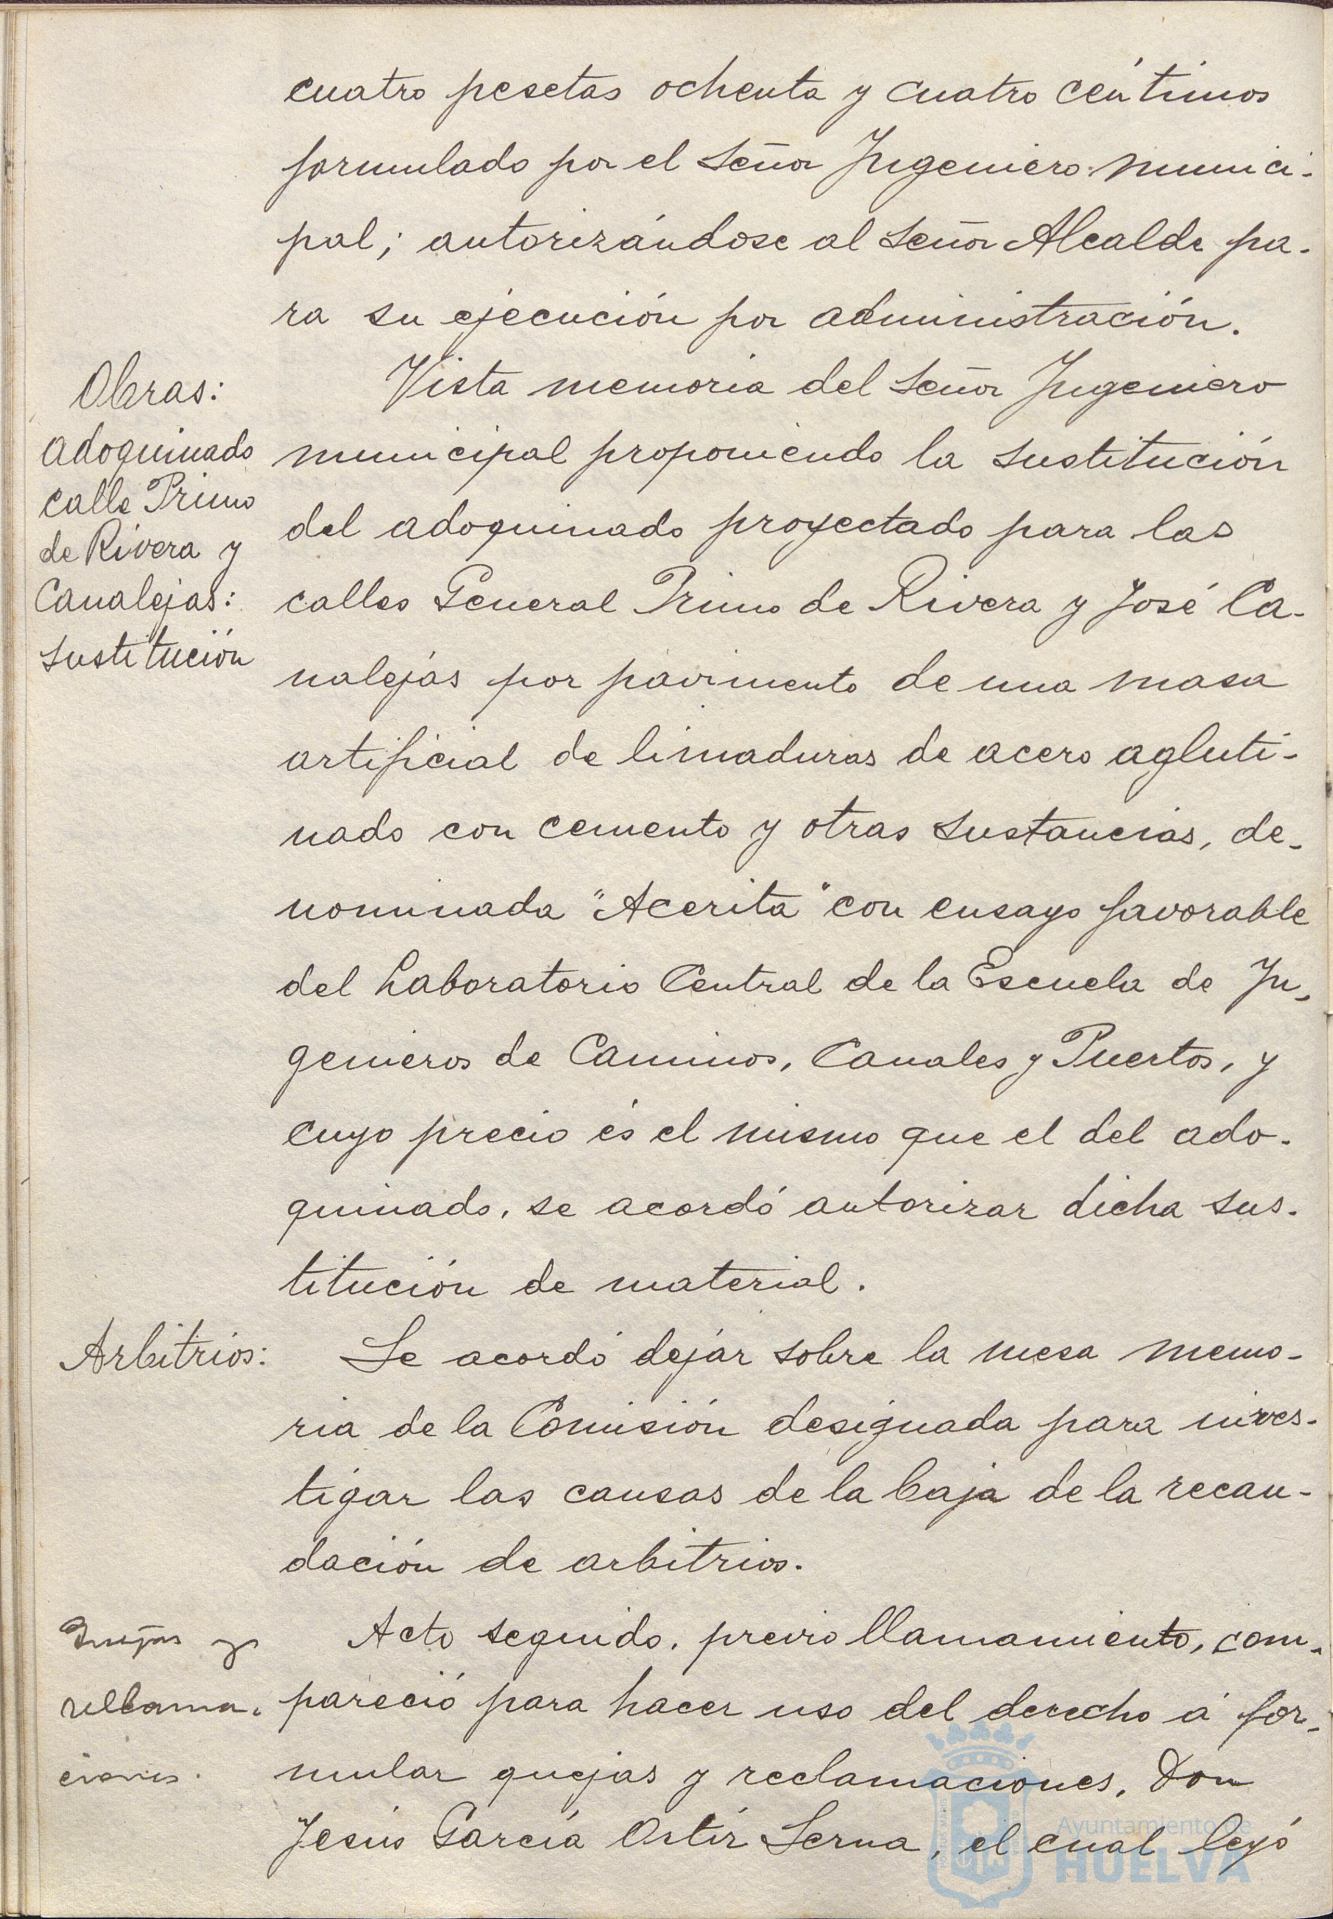 cuatro pesetas ochenta y cuatro céntimos
formulado por el Señor Ingeniero munici-
pal; autorizándose al Señor Alcalde pa-
ra su ejecución por administración.
Obras:
adoquinado
calle Primo
de Rivera y
Canalejas:
sustitución
Vista memoria del Señor Ingeniero
municipal proponiendo la sustitución
del adoquinado proyectado para las
calles General Primo de Rivera y José Ca-
nalejas por pavimento de una masa
artificial de limaduras de acero agluti-
nado con cemento y otras sustancias, de-
nominada "Acerita" con ensayo favorable
del Laboratorio Central de la Escuela de In-
genieros de Caminos, Canales y Puertos, y
cuyo precio és el mismo que el del ado-
quinado, se acordó autorizar dicha sus-
titución de material.
Arbitrios:
Se acordó dejar sobre la mesa memo-
ria de la Comisión designada para inves-
tigar las causas de la baja de la recau-
dación de arbitrios.
Quejas y
reclama-
ciones.
Acto seguido, previo llamamiento, com-
pareció para hacer uso del derecho á for-
mular quejas y reclamaciones, Don
Jesús García Ortíz Serna, el cual leyó
Ayuntamiento de
HUELVA